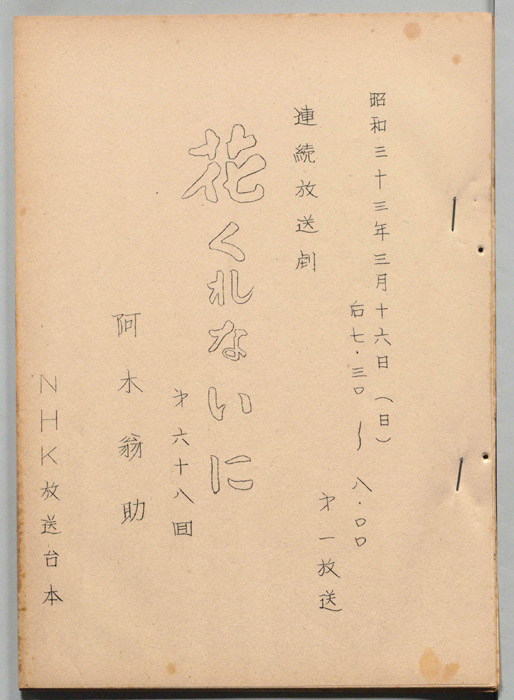 昭和三十三年三月十六日(日)
后七・三〇～八・〇〇
才一放送
連続放送劇
花くれないに
才六十八回
阿木翁助
NHK放送台本